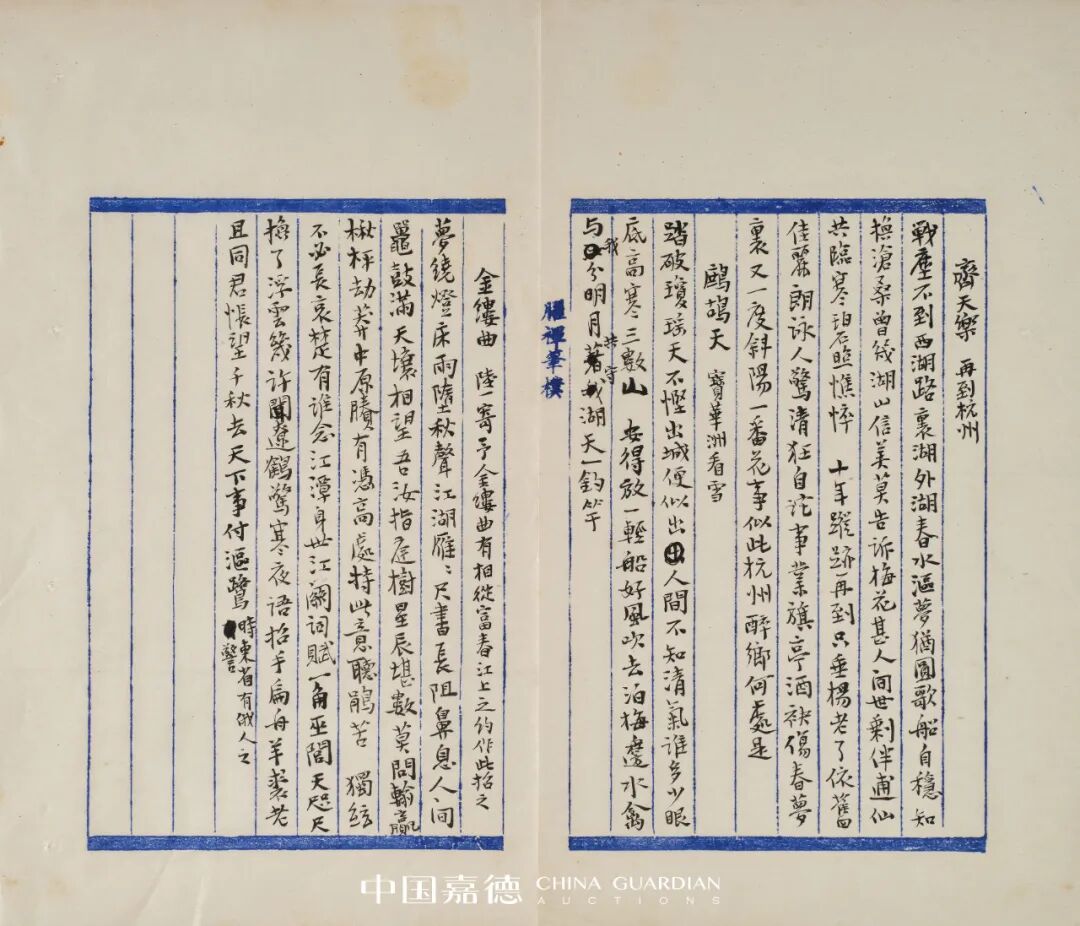 齊天樂　再到杭州
戰塵不到西湖路裏湖外湖春水漚夢猶圓歌船自穩知
換滄桑曾幾湖山信美莫告訴梅花甚人間世剩伴逋仙
共臨寒碧照憔悴　十年蹤跡再到只垂楊老了依舊
佳麗朗詠人驚清狂自詫事業旗亭酒袂傷春夢
裏又一度斜陽一番花事似此杭州醉鄉何處是
鷓鴣天　寶華洲看雪
踏破瓊瑤天不慳出城便似出人間不知清氣誰多少眼
底高寒三數山　安得放一輕船好風吹去泊梅邊水禽
与我分明月共守湖天一釣竿
臞禪筆樸
金縷曲　陸一寄予金縷曲有相從富春江上之約作此招之
夢繞燈床雨墮秋聲江湖雁〻尺書長阻鼻息人間
鼉鼓滿天壤相望吾汝指庭樹星辰堪數莫問輸贏
楸枰劫算中原賸有憑高處持此意聽鵑苦　獨絃
不必長哀楚有誰念江潭身世江關詞賦一角巫閭天咫尺
換了浮雲幾許聞遼鶴驚寒夜語招手扁舟羊裘老
且同君悵望千秋去天下事付漚鷺　時東省有俄人之
警
中国嘉德
CHINA GUARDIAN
AUCTIONS